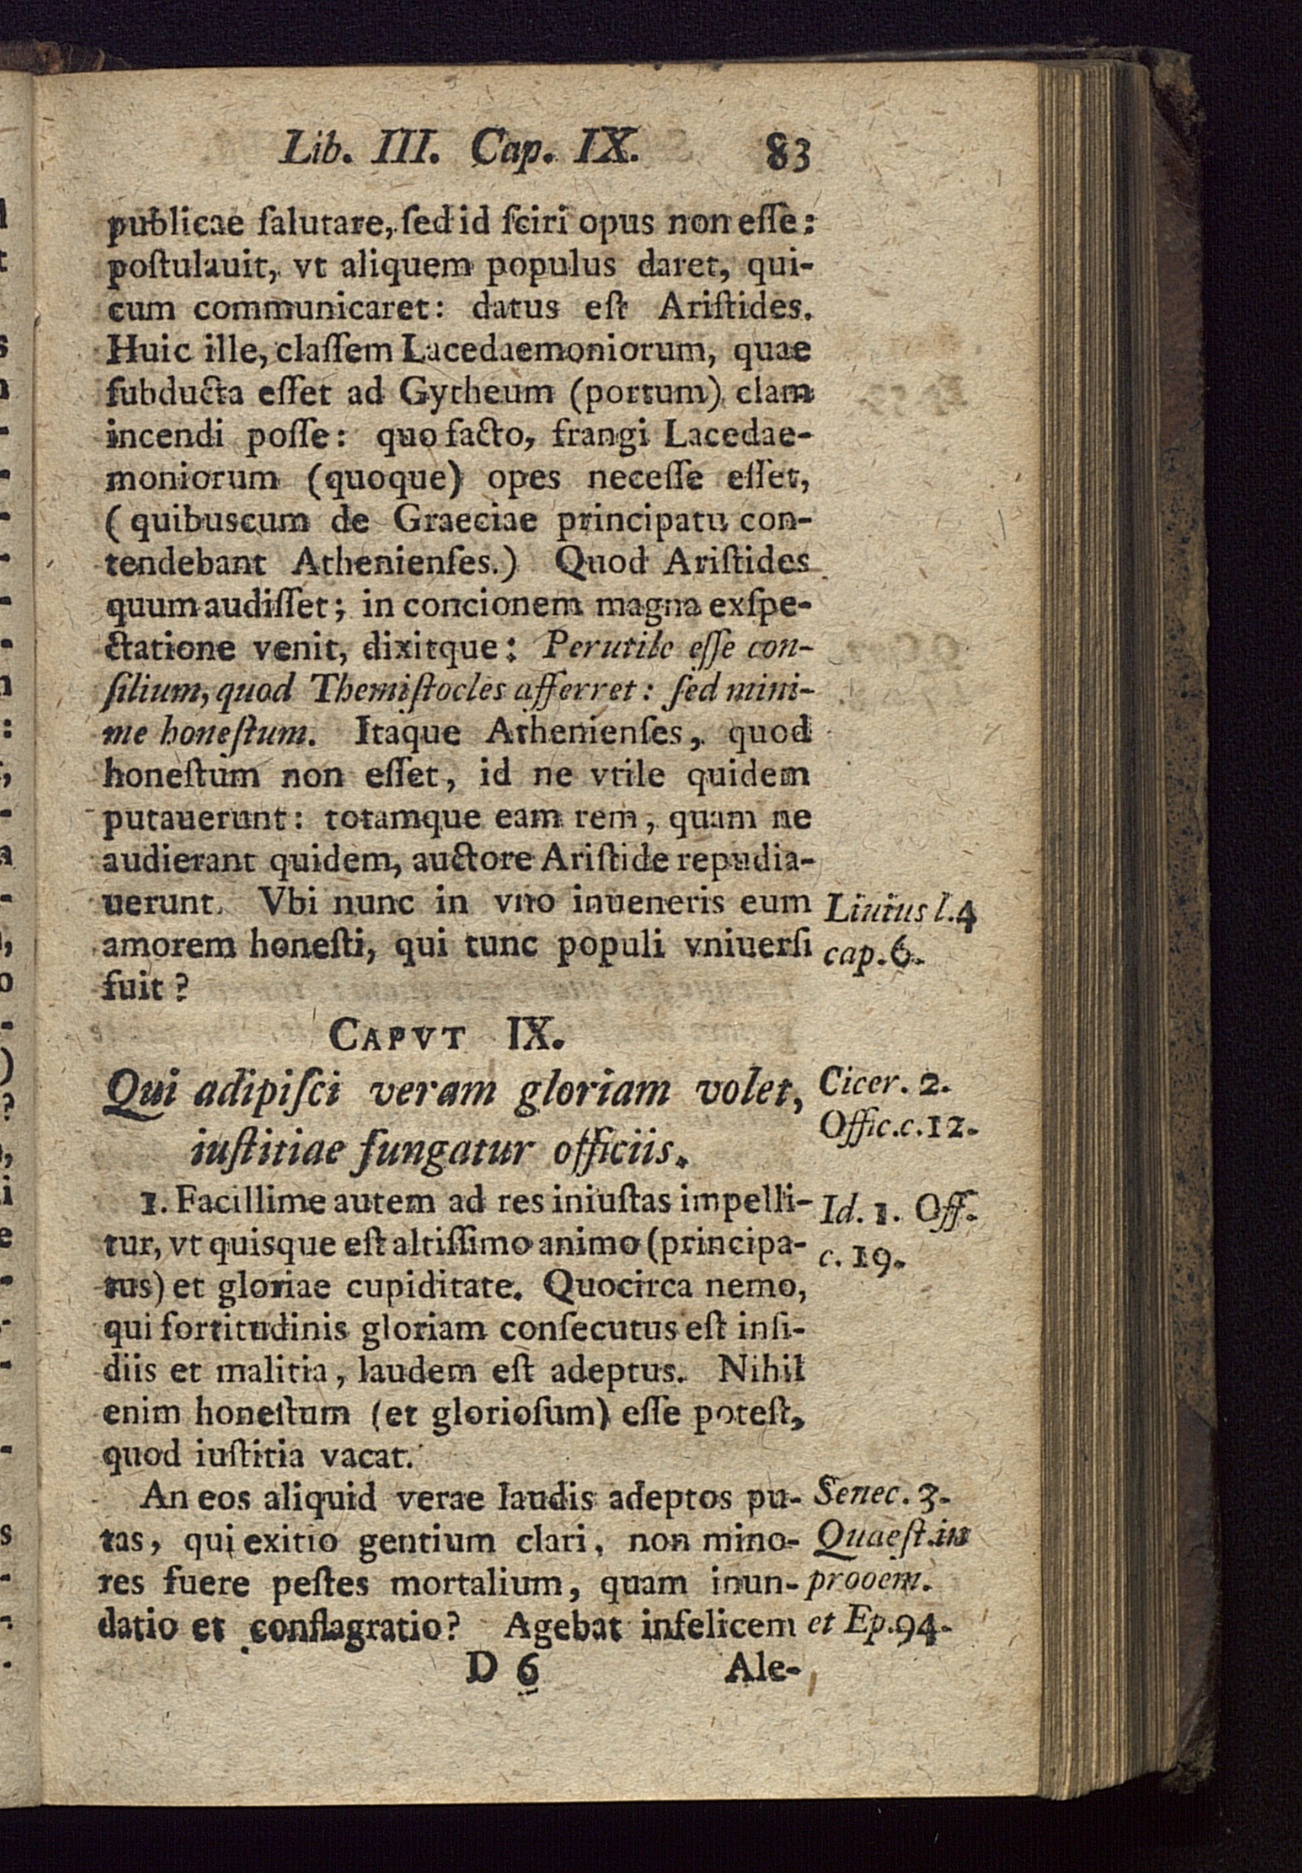 Lib. III. Cap. IX. 83
publicae ſalutare, ſed id ſciri opus non eſſe:
poſtulauit, vt aliquem populus daret, qui-
cum communicaret: datus eſt Ariſtides.
Huic ille, claſſem Lacedaemoniorum, quae
ſubducta eſſet ad Gytheum (portum) clam
incendi poſſe: quo facto, frangi Lacedae-
moniorum (quoque) opes neceſſe eſſet,
(quibuscum de Graeciae principatu con-
tendebant Athenienſes.) Quod Ariſtides
quum audiſſet; in concionem magna exſpe-
ctatione venit, dixitque: Perutile eſſe con-
ſilium, quod Themiſtocles afferret: ſed mini-
me honeſtum. Itaque Athenienſes, quod
honeſtum non eſſet, id ne vtile quidem
putauerunt: totamque eam rem, quam ne
audierant quidem, auctore Ariſtide repudia-
uerunt. Vbi nunc in vno inueneris eum Liuius l.4
amorem honeſti, qui tunc populi vniuerſi cap.6.
fuit?
CAPVT IX.
Qui adipiſci veram gloriam volet, Cicer. 2.
Offic.c.12.
iuſtitiae fungatur officiis.
1. Facillime autem ad res iniuſtas impelli- Id. 1. Off.
tur, vt quisque eſt altiſſimo animo (principa- c. 19.
tus) et gloriae cupiditate. Quocirca nemo,
qui fortitudinis gloriam conſecutus eſt inſi-
diis et malitia, laudem eſt adeptus. Nihil
enim honeſtum (et glorioſum) eſſe poteſt,
quod iuſtitia vacat.
An eos aliquid verae laudis adeptos pu- Senec. 3.
tas, qui exitio gentium clari, non mino- Quaeſt.in
res fuere peſtes mortalium, quam inun- prooem.
datio et conflagratio? Agebat infelicem et Ep.94.
D 6 Ale-